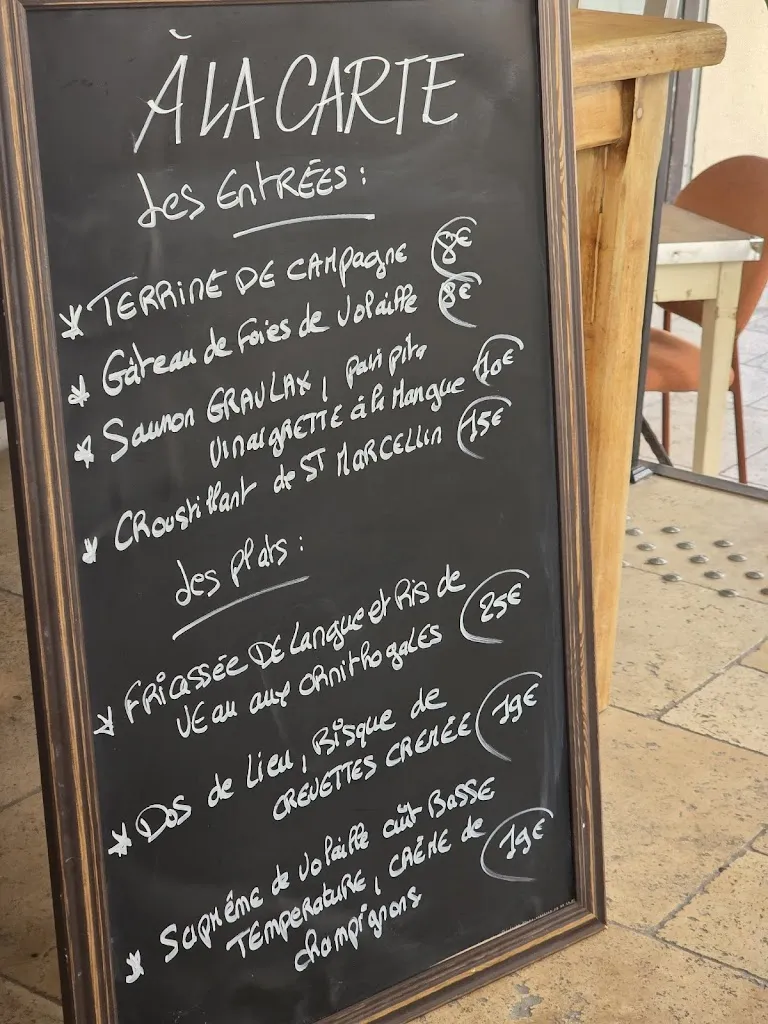 À LA CARTE
des ENTRÉES :
* TERRINE DE CAMPAGNE 8€
* Gâteau de foies de volaille 8€
* Saumon GRAVLAX, pain pita
VINAIGRETTE à la Mangue 10€
* CROUSTILLANT de ST MARCELLIN 15€
des plats :
* FRICASSÉE DE Langue et Ris de
VEAU aux ORNITHOGALES 25€
* Dos de Lieu, BISQUE de
CREVETTES CRÉMÉE 19€
* Suprême de volaille cuit BASSE
TEMPERATURE, CRÈME de 19€
champignons